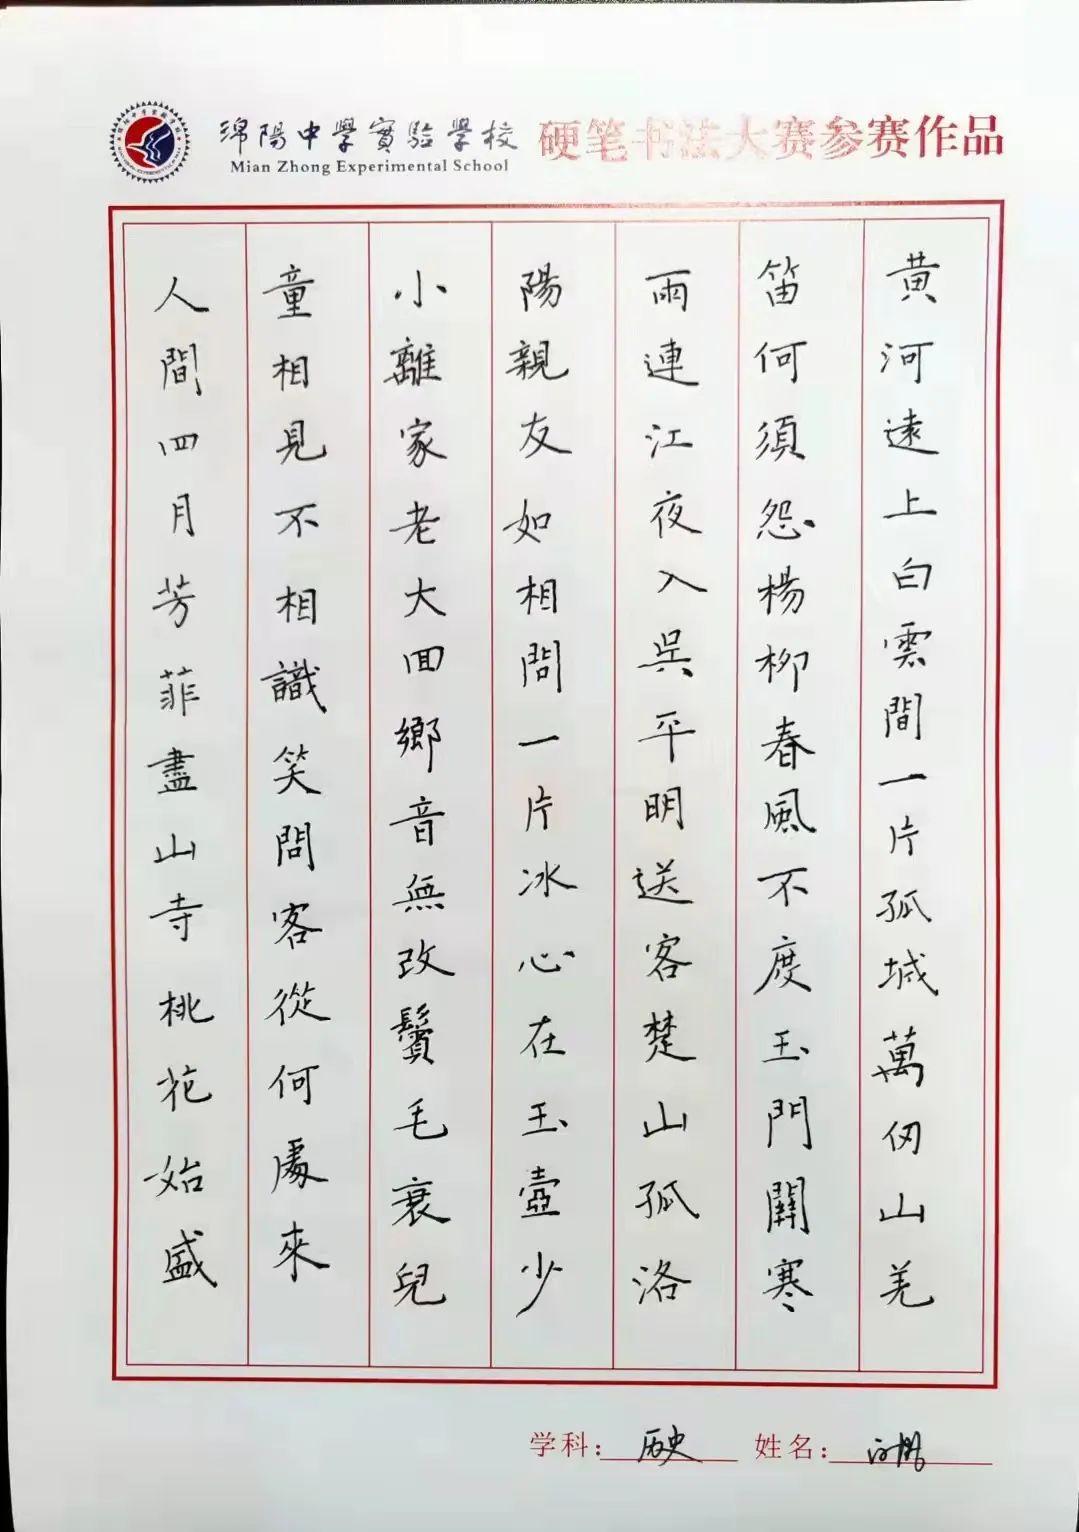 绵陽中學實驗學校 硬笔书法大赛参赛作品
Mian Zhong Experimental School
黄河遠上白雲間一片孤城萬仞山羌
笛何須怨楊柳春風不度玉門關寒
雨連江夜入吳平明送客楚山孤洛
陽親友如相問一片冰心在玉壺少
小離家老大回鄉音無改鬢毛衰兒
童相見不相識笑問客從何處來
人間四月芳菲盡山寺桃花始盛
学科：历史 姓名：